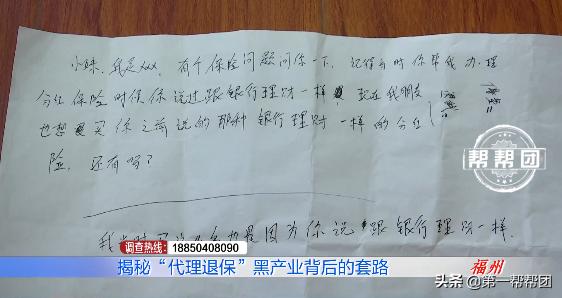 小妹,我是XXX,有个保险问题问你一下,记得当时你帮我办理
分红保险时候你说过跟银行理财一样,现在我朋友
也想买你之前说的那种银行理财一样的分红
险,还有吗?
是因为你说跟银行理财一样.
帮帮团
调查热线: 18850408090
揭秘“代理退保”黑产业背后的套路
福州
头条 @第一帮帮团